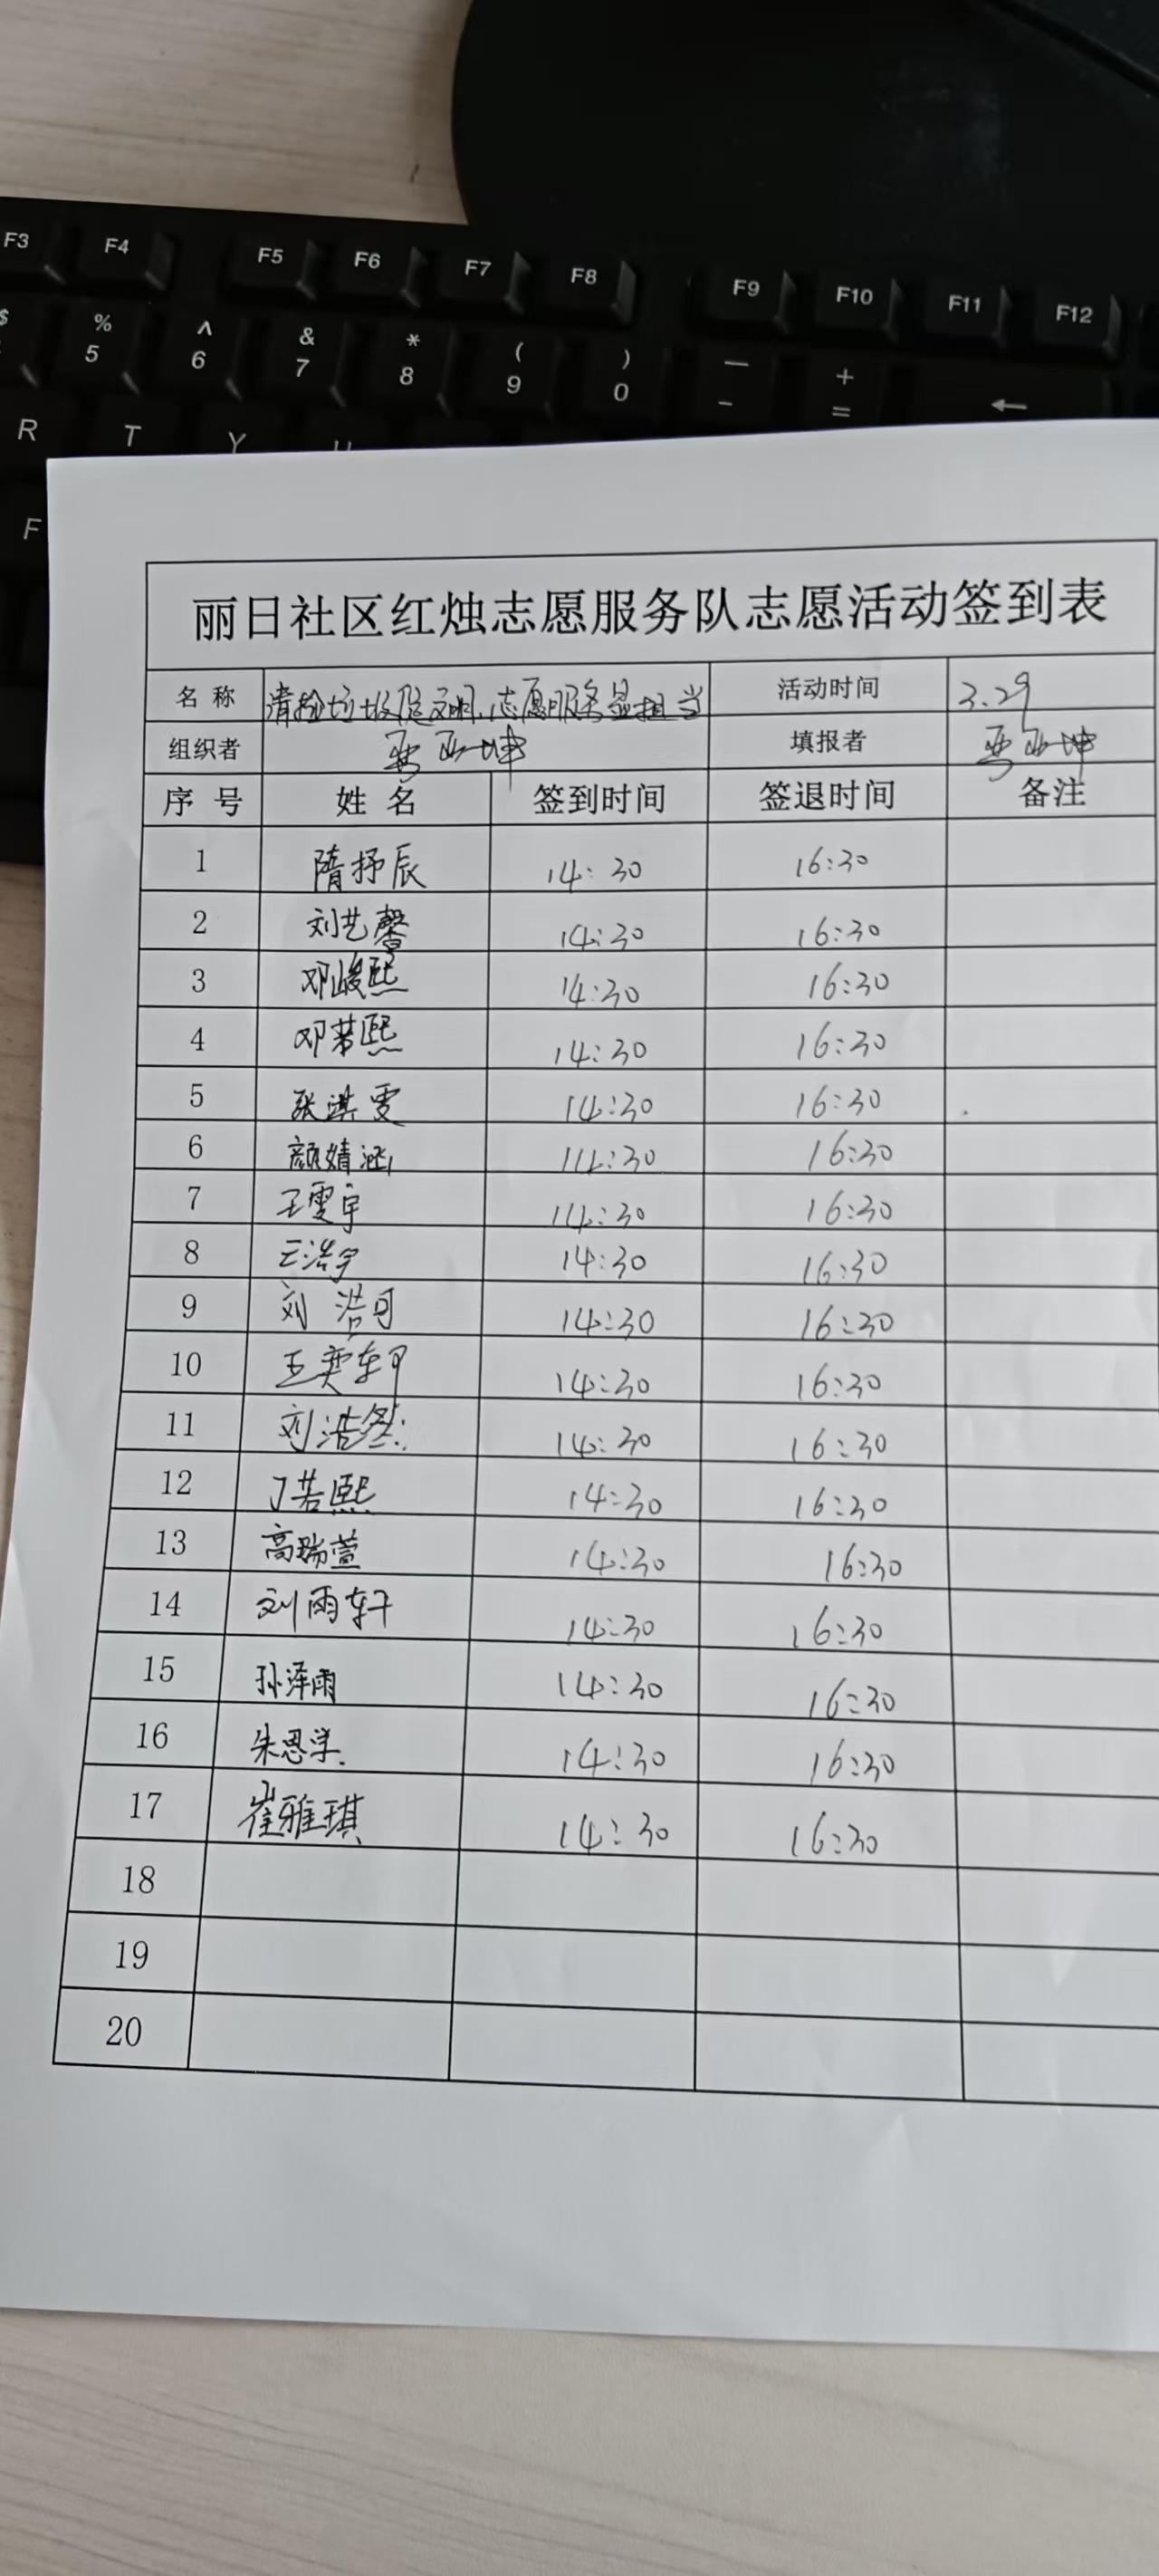 F3 F4 F5 F6 F7 F8 F9 F10 F11 F12
$ % ^ & * ( ) — +
5 6 7 8 9 0 - = ←
R T Y U
F
丽日社区红烛志愿服务队志愿活动签到表
名 称 清捡垃圾促文明,志愿服务显担当 活动时间 3.29
组织者 亚坤 填报者 亚坤
序 号 姓 名 签到时间 签退时间 备注
1 隋抒辰 14:30 16:30
2 刘艺馨 14:30 16:30
3 邓峻熙 14:30 16:30
4 邓若熙 14:30 16:30
5 张淇雯 14:30 16:30
6 颜婧涵 14:30 16:30
7 王雯宇 14:30 16:30
8 王浩宇 14:30 16:30
9 刘浩可 14:30 16:30
10 王奕轩 14:30 16:30
11 刘浩然 14:30 16:30
12 丁若熙 14:30 16:30
13 高瑞萱 14:30 16:30
14 刘雨轩 14:30 16:30
15 孙泽雨 14:30 16:30
16 朱恩学 14:30 16:30
17 崔雅琪 14:30 16:30
18
19
20